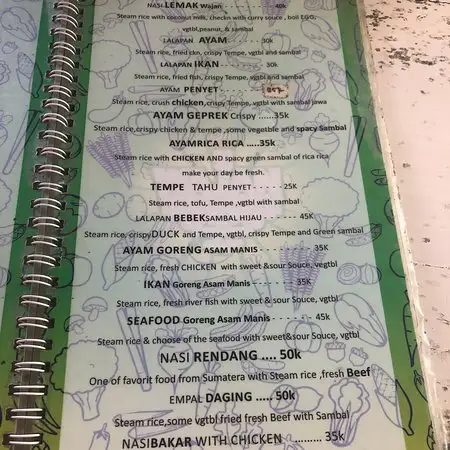 NASI LEMAK Wajan - - - - - 40k
Steam rice with coconut milk, checkn with curry souce , boil EGG,
vgtbl,peanut, & sambal
LALAPAN AYAM - - - - - 30k
Steam rice, fried ckn, crispy Tempe, vgtbl and sambal
LALAPAN IKAN - - - - - 30k
Steam rice, fried fsh, crispy Tempe, vgtbl and sambal
AYAM PENYET - - - - -
Steam rice, crush chicken,crispy Tempe, vgtbl with sambal jawa
AYAM GEPREK Crispy ......35k
Steam rice,crispy chicken & tempe ,some vegetble and spacy Sambal
AYAMRICA RICA .....35k
Steam rice with CHICKEN AND spacy green sambal of rica rica
make your day be fresh.
TEMPE TAHU PENYET - - - - - 25K
Steam rice, tofu, Tempe ,vgtbl with sambal
LALAPAN BEBEKSAMBAL HIJAU - - - - - 45K
Steam rice, crispyDUCK and Tempe, vgtbl, crispy Tempe and Green sambal
AYAM GORENG ASAM MANIS - - - - - - 35K
Steam rice, fresh CHICKEN with sweet &sour Souce, vegtbl
IKAN Goreng Asam Manis - - - - - 35k
Steam rice, fresh river fish with sweet & sour Souce, vgtbl
SEAFOOD Goreng Asam Manis - - - - - - 45k
Steam rice & choose of the seafood with sweet&sour Souce, vgtbl
NASI RENDANG .... 50k
One of favorit food from Sumatera with Steam rice ,fresh Beef
EMPAL DAGING ..... 50k
Steam rice,some vgtbl fried fresh Beef with Sambal
NASIBAKAR WITH CHICKEN ......... 35k